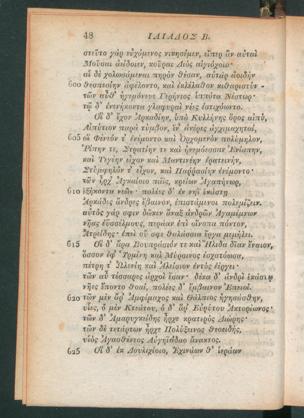 48 ΙΛΙΑΔΟΣ Β.
στεῦτο γὰρ εὐχόμενος νικησέμεν, εἴπερ ἂν αὐταὶ
Μοῦσαι ἀείδοιεν, κοῦραι Διὸς αἰγιόχοιο·
αἱ δὲ χολωσάμεναι πηρὸν θέσαν, αὐτὰρ ἀοιδὴν
600 θεσπεσίην ἀφέλοντο, καὶ ἐκλέλαθον κιθαριστύν·
τῶν αὖθ' ἡγεμόνευε Γερήνιος ἱππότα Νέστωρ·
τῷ δ' ἐνενήκοντα γλαφυραὶ νέες ἐστιχόωντο.
Οἳ δ' ἔχον Ἀρκαδίην, ὑπὸ Κυλλήνης ὄρος αἰπύ,
Αἰπύτιον παρὰ τύμβον, ἵν' ἀνέρες ἀγχιμαχηταί,
605 οἳ Φενεόν τ' ἐνέμοντο καὶ Ὀρχομενὸν πολύμηλον,
Ῥίπην τε, Στρατίην τε καὶ ἠνεμόεσσαν Ἐνίσπην,
καὶ Τεγέην εἶχον καὶ Μαντινέην ἐρατεινήν,
Στύμφηλόν τ' εἶχον, καὶ Παῤῥασίην ἐνέμοντο·
τῶν ἦρχ' Ἀγκαίοιο παῖς, κρείων Ἀγαπήνωρ,
610 ἑξήκοντα νεῶν· πολέες δ' ἐν νηῒ ἑκάστῃ
Ἀρκάδες ἄνδρες ἔβαινον, ἐπιστάμενοι πολεμίζειν.
αὐτὸς γάρ σφιν δῶκεν ἄναξ ἀνδρῶν Ἀγαμέμνων
νῆας ἐϋσσέλμους, περάαν ἐπὶ οἴνοπα πόντον,
Ἀτρείδης· ἐπεὶ οὔ σφι θαλάσσια ἔργα μεμήλει.
615 Οἳ δ' ἄρα Βουπράσιόν τε καὶ Ἤλιδα δῖαν ἔναιον,
ὅσσον ἐφ' Ὑρμίνη καὶ Μύρσινος ἐσχατόωσα,
πέτρη τ' Ὠλενίη καὶ Ἀλείσιον ἐντὸς ἐέργει·
τῶν αὖ τέσσαρες ἀρχοὶ ἔσαν· δέκα δ' ἀνδρὶ ἑκάστῳ
νῆες ἕποντο θοαί, πολέες δ' ἔμβαινον Ἐπειοί.
620 τῶν μὲν ἄρ' Ἀμφίμαχος καὶ Θάλπιος ἡγησάσθην,
υἷες, ὁ μὲν Κτεάτου, ὁ δ' ἄρ' Εὐρύτου Ἀκτορίωνος·
τῶν δ' Ἀμαρυγκείδης ἦρχε κρατερὸς Διώρης·
τῶν δὲ τετάρτων ἦρχε Πολύξεινος θεοειδής,
υἱὸς Ἀγασθένεος Αὐγηϊάδαο ἄνακτος.
625 Οἳ δ' ἐκ Δουλιχίοιο, Ἐχινάων θ' ἱεράων